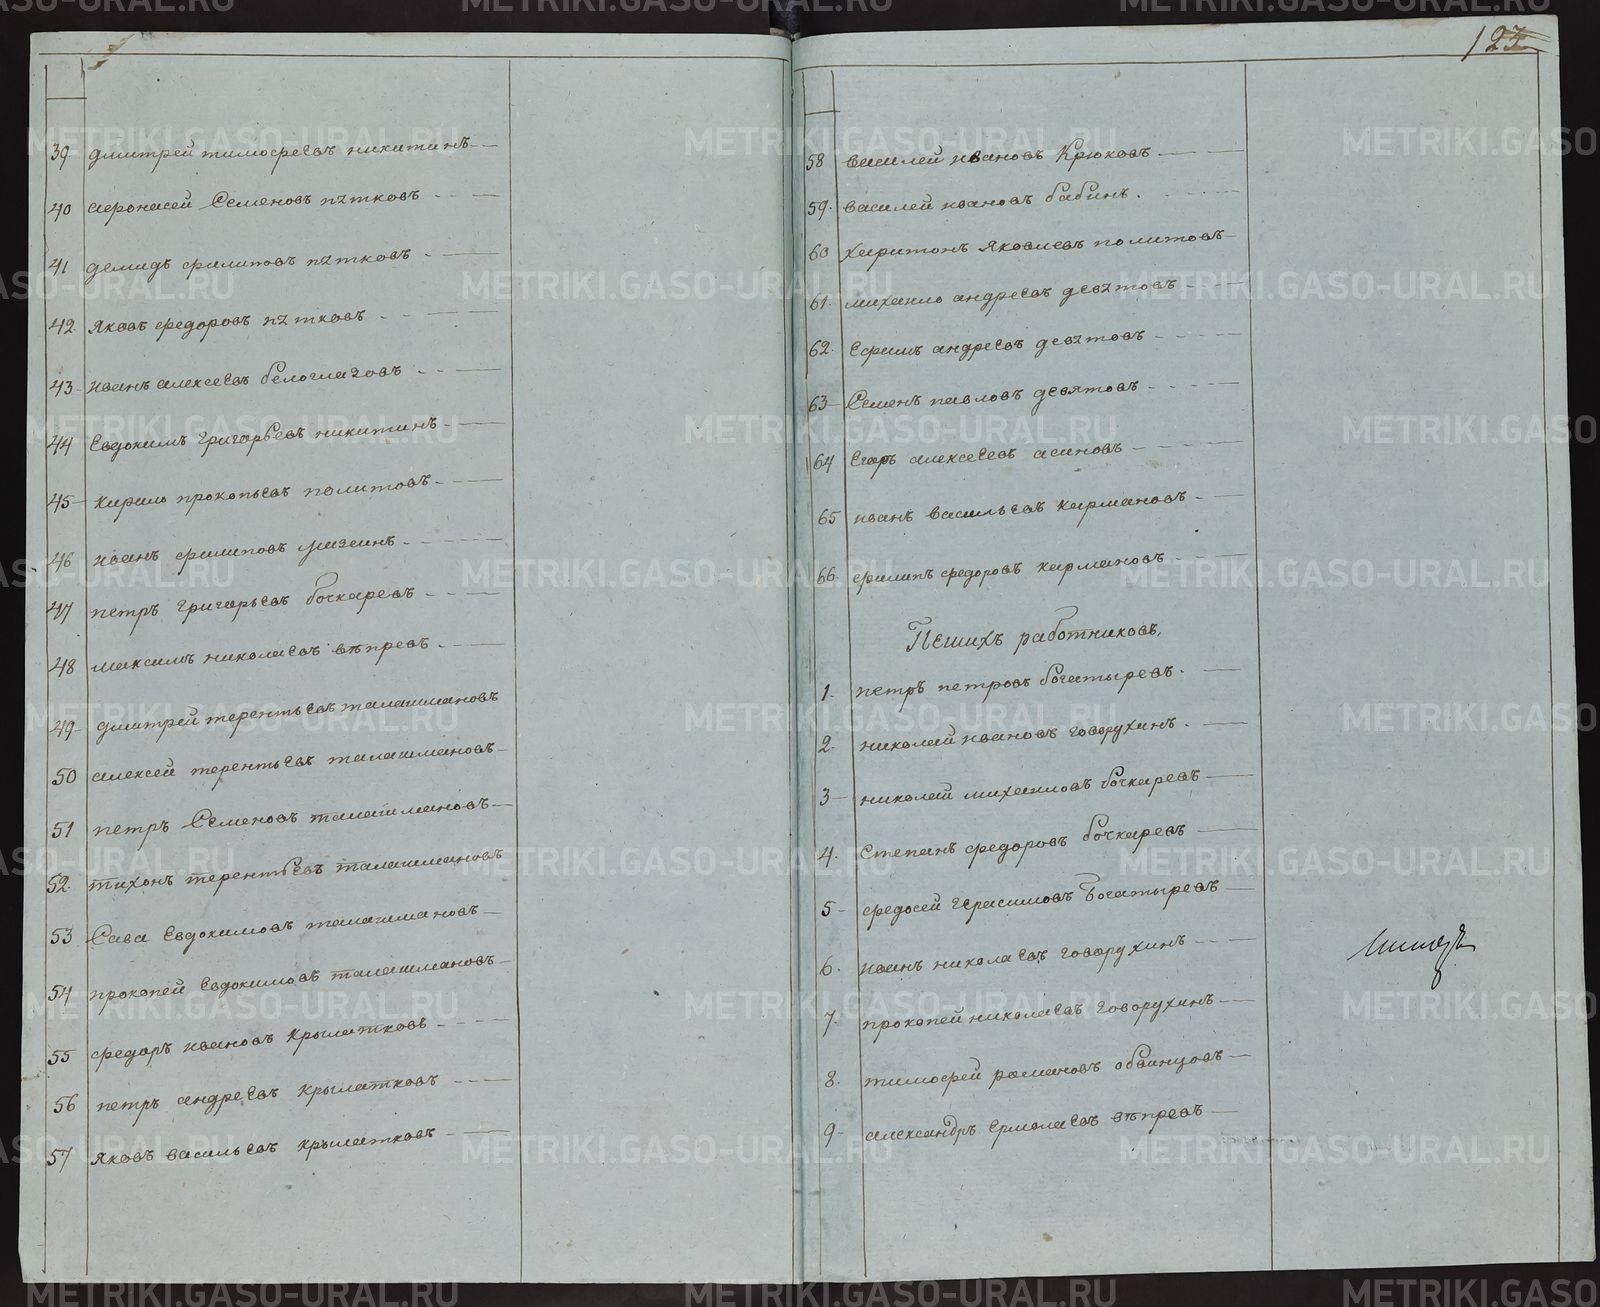 39. дмитрей тимофеевъ никитинъ
40 афонасей Семеновъ пятковъ
41 демидъ филиповъ пятковъ
42 Яковъ федоровъ пятковъ
43 иванъ алексеевъ белоглазовъ
44 Евдокимъ григорьевъ никитинъ
45 кирило прокопьевъ политовъ
46 иванъ филиповъ
47 петръ григорьевъ бочкаревъ
48 максимъ николаевъ вѣпревъ
49 дмитрей терентьевъ талашмановъ
50 алексей терентьевъ талашмановъ
51 петръ Семеновъ талашмановъ
52. тихонъ терентьевъ талашмановъ
53 Сава Евдокимовъ талашмановъ
54 прокопей Евдокимовъ талашмановъ
55 федоръ ивановъ крылатковъ
56 петръ андреевъ крылатковъ
57 яковъ васильевъ крылатковъ
123
58 василей ивановъ Крюковъ
59. василей ивановъ бабинъ.
60 харитонъ яковлевъ политовъ
61. михаило андреевъ девятовъ
62. Ефимъ андреевъ девятовъ
63 Семенъ павловъ девятовъ
64 Егоръ алексеевъ асановъ
65 иванъ васильевъ кармановъ
66. филипъ федоровъ кармановъ
Пешихъ работниковъ.
1. петръ петровъ богатыревъ.
2. николай ивановъ говорухинъ.
3 николай михаиловъ бочкаревъ
4. Степанъ федоровъ бочкаревъ
5 федосей герасимовъ Богатыревъ
6. иванъ николаевъ говорухинъ
7. прокопей николаевъ говорухинъ
8. тимофей романовъ обвинцовъ
9 александръ Ермолаевъ вѣпревъ
METRIKI.GASO-URAL.RU